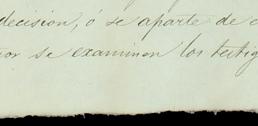 decision, ó se aparte de
se examinen los testig